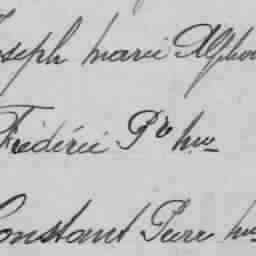 Joseph Marie Alphon
Frédéric Pre Mie
Constant Pierre M